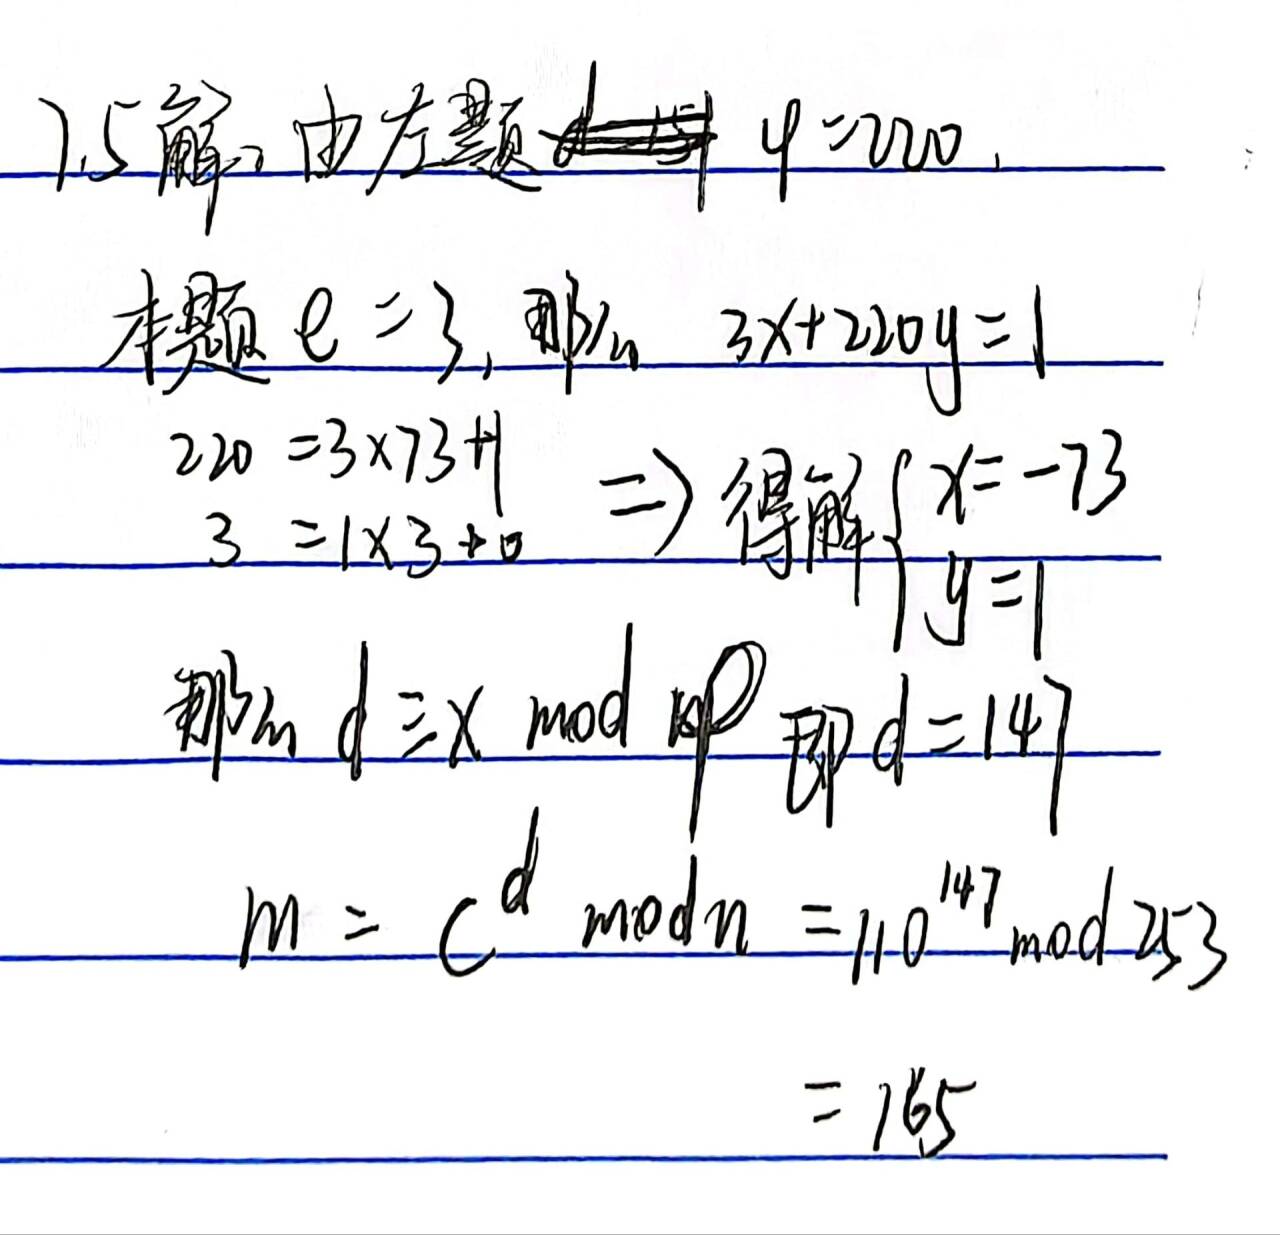 7.5解:由左题 φ=220.
本题 e=3, 那么 3x+220y=1
220 =3×73+1
3 =1×3+0 => 得解{x=-73
y=1
那么 d≡x mod φ 即d=147
m = c^d mod n =110^147 mod 253
=165